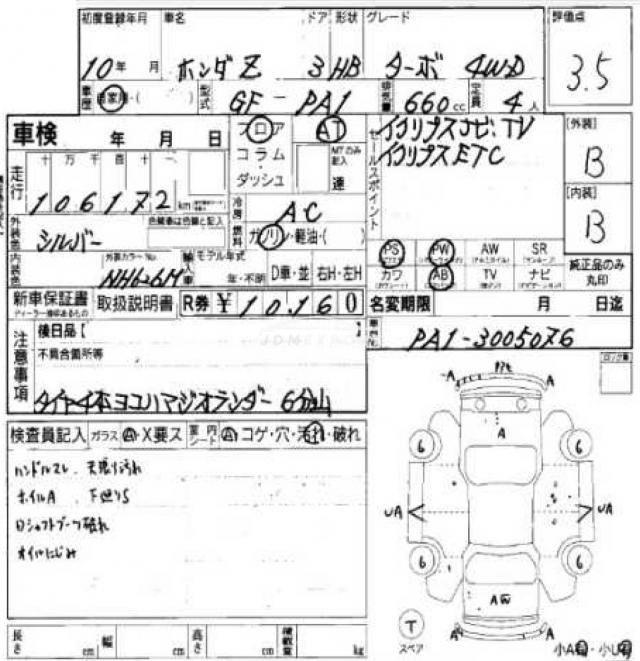 初度登録年月 車名 ドア 形状 グレード 評価点
10年 月 ホンダ Z 3 HB ターボ 4WD 3.5
車歴 自家用・( ) 型式 GF-PA1 排気量 660cc 定員 4人
車検 年 月 日 フロア AT セールスポイント イクリプスナビ.TV [外装]
コラム・ MTのみ記入 イクリプスETC B
走行 十万千百十一 ダッシュ 速
106172km 冷房 AC [内装]
外装色 シルバー 色替車は色替と記入 燃料 ガソリン・軽油・( ) B
内装色 外装カラーNo. NH626M 輸入車 モデル年式 年・不明 D車・並 右H・左H
PS PW AW SR
カワ AB TV ナビ
純正品のみ丸印
新車保証書 取扱説明書 R券 ¥10,160 名変期限 月 日迄
ディーラー捺印あるもの
注意事項 後日品【 車台No. PA1-3005076
不具合箇所等 ロック有
タイヤ4本ヨコハマジオランダー 6分山
検査員記入 ガラス A・X要ス 室内シート A コゲ・穴・汚れ・破れ
ハンドルスレ、天張り汚れ
ホイルA 下廻りS
Dシャフトブーツ破れ
オイルにじみ
A A
A
6 6
UA UA
6 6
AW
T
スペア
A A
長さ cm 幅 cm 高さ cm 積載量 kg 小A有・小U有